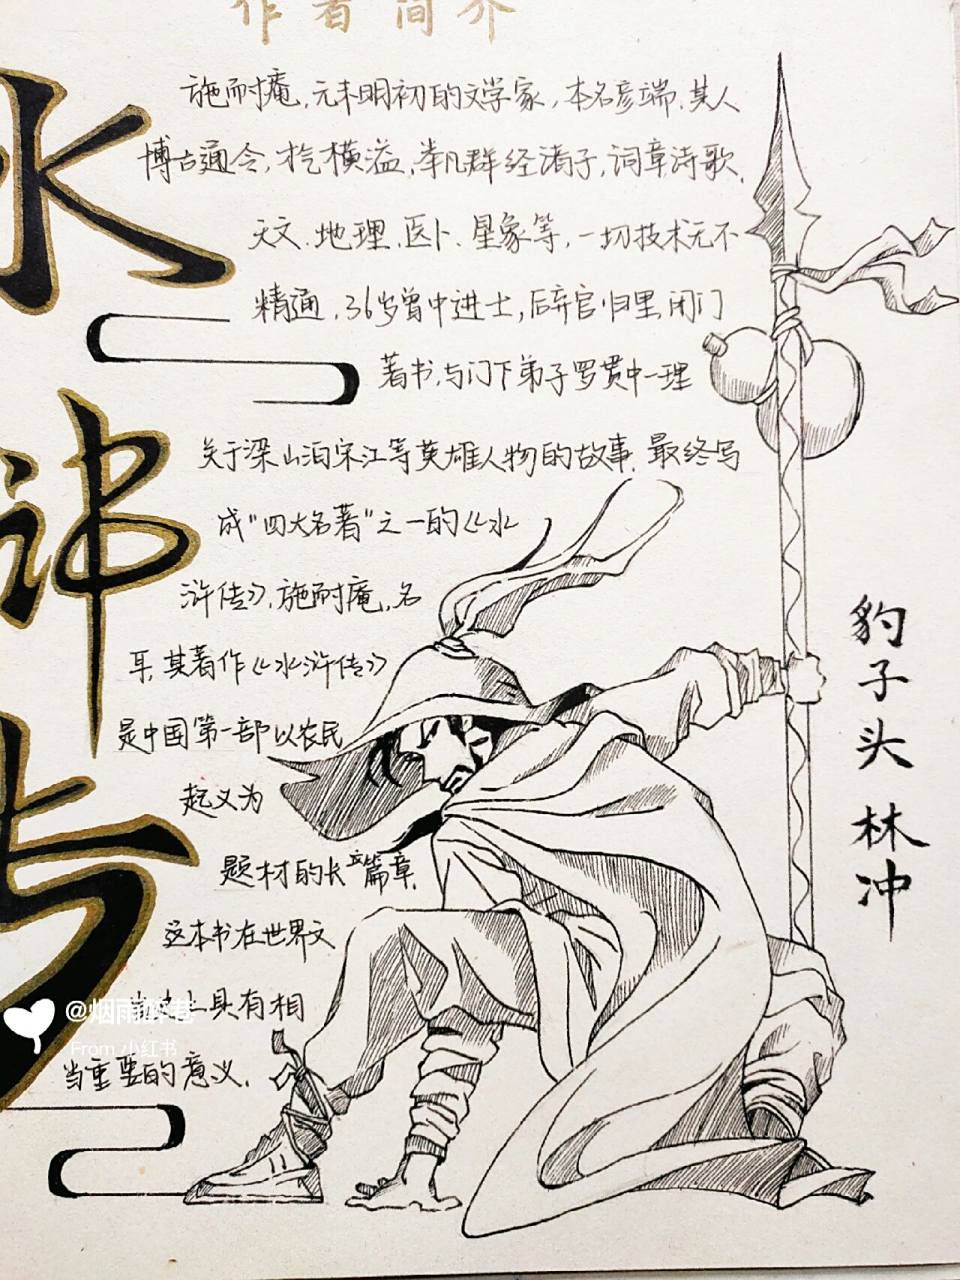 作者简介
水浒传
施耐庵,元末明初的文学家,本名彦端,其人
博古通今,才气横溢,举凡群经诸子,词章诗歌,
天文、地理、医卜、星象等,一切技术无不
精通,36岁曾中进士,后弃官归里,闭门
著书,与门下弟子罗贯中一理
关于梁山泊宋江等英雄人物的故事,最终写
成“四大名著”之一的《水
浒传》,施耐庵,名
耳,其著作《水浒传》
是中国第一部以农民
起义为
题材的长篇章,
这本书在世界文
上具有相
当重要的意义.
豹子头 林冲
@烟雨醉巷
From 小红书